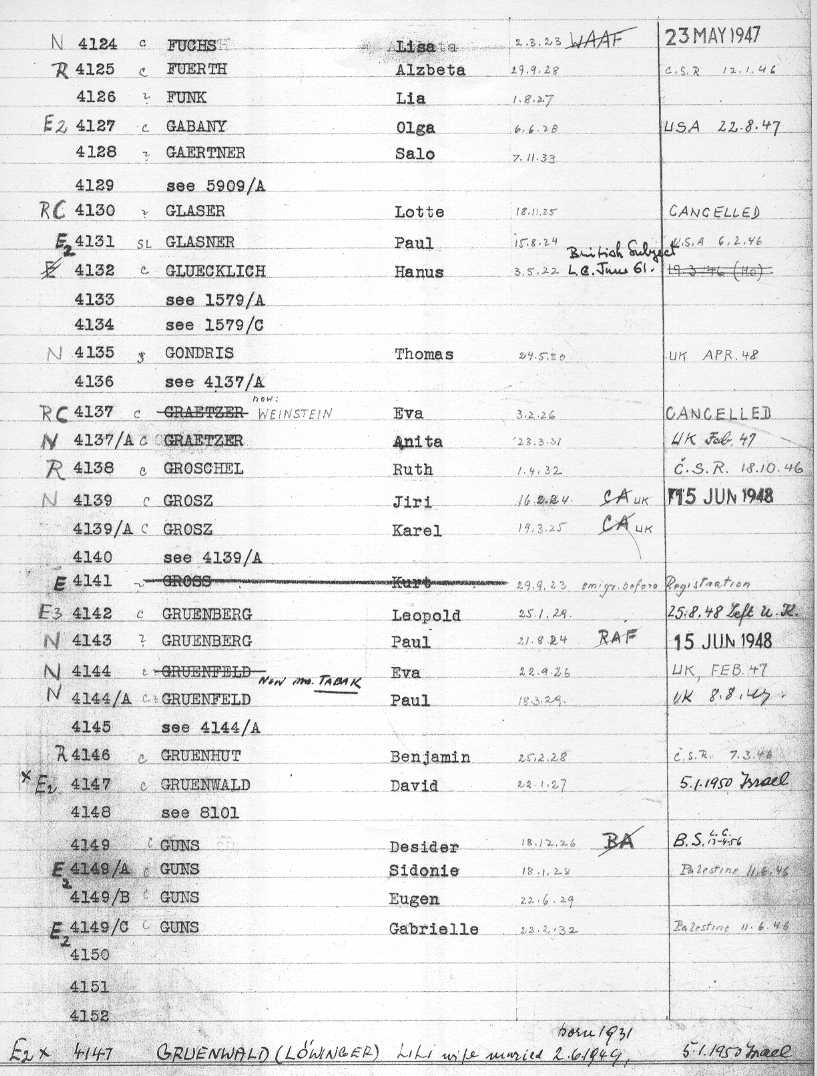 N 4124 c FUCHS Lisa 2.3.23 WAAF 23 MAY 1947
R 4125 c FUERTH Alzbeta 29.9.28 C.S.R 12.1.46
4126 ? FUNK Lia 1.8.27
E2 4127 c GABANY Olga 6.6.28 USA 22.8.47
4128 ? GAERTNER Salo 7.11.33
4129 see 5909/A
RC 4130 ? GLASER Lotte 18.11.25 CANCELLED
E2 4131 SL GLASNER Paul 15.8.24 U.S.A 6.2.46
British Subject
E 4132 c GLUECKLICH Hanus 3.5.22 L.G. June 61. 19.3.46 (Ho)
4133 see 1579/A
4134 see 1579/C
N 4135 GONDRIS Thomas 24.5.30 UK APR. 48
4136 see 4137/A
now:
RC 4137 c GRAETZER WEINSTEIN Eva 3.2.26 CANCELLED
N 4137/A c GRAETZER Anita 23.3.31 UK Feb. 47
R 4138 c GROSCHEL Ruth 1.4.32 Č.S.R. 18.10.46
N 4139 c GROSZ Jiri 16.2.24 CA UK 15 JUN 1948
4139/A c GROSZ Karel 19.3.25 CA UK
4140 see 4139/A
E 4141 ? GROSS Kurt 29.9.23 emigr. before Registration
E3 4142 c GRUENBERG Leopold 25.1.29. 25.8.48 Left U.K.
N 4143 ? GRUENBERG Paul 21.8.24 RAF 15 JUN 1948
N 4144 c GRUENFELD Eva 22.9.26 UK, FEB. 47
Now Mrs. TABAK
N 4144/A c GRUENFELD Paul 18.3.29. UK 8.8.47
4145 see 4144/A
R 4146 c GRUENHUT Benjamin 25.2.28 Č.S.R. 7.3.46
x E2 4147 c GRUENWALD David 22.1.27 5.1.1950 Israel
4148 see 8101
4149 c GUNS Desider 18.12.26 BA B.S. L.G.
E2 4149/A c GUNS Sidonie 18.1.28 Palestine 11.6.46
4149/B c GUNS Eugen 22.6.29
E2 4149/C c GUNS Gabrielle 22.2.32 Palestine 11.6.46
4150
4151
4152
born 1931
E2 x 4147 GRUENWALD (LÖWINGER) LILI wife married 2.6.1949, 5.1.1950 Israel